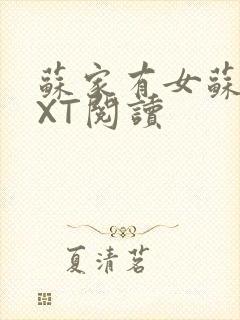 蘇家有女蘇
XT閱讀
夏清茗